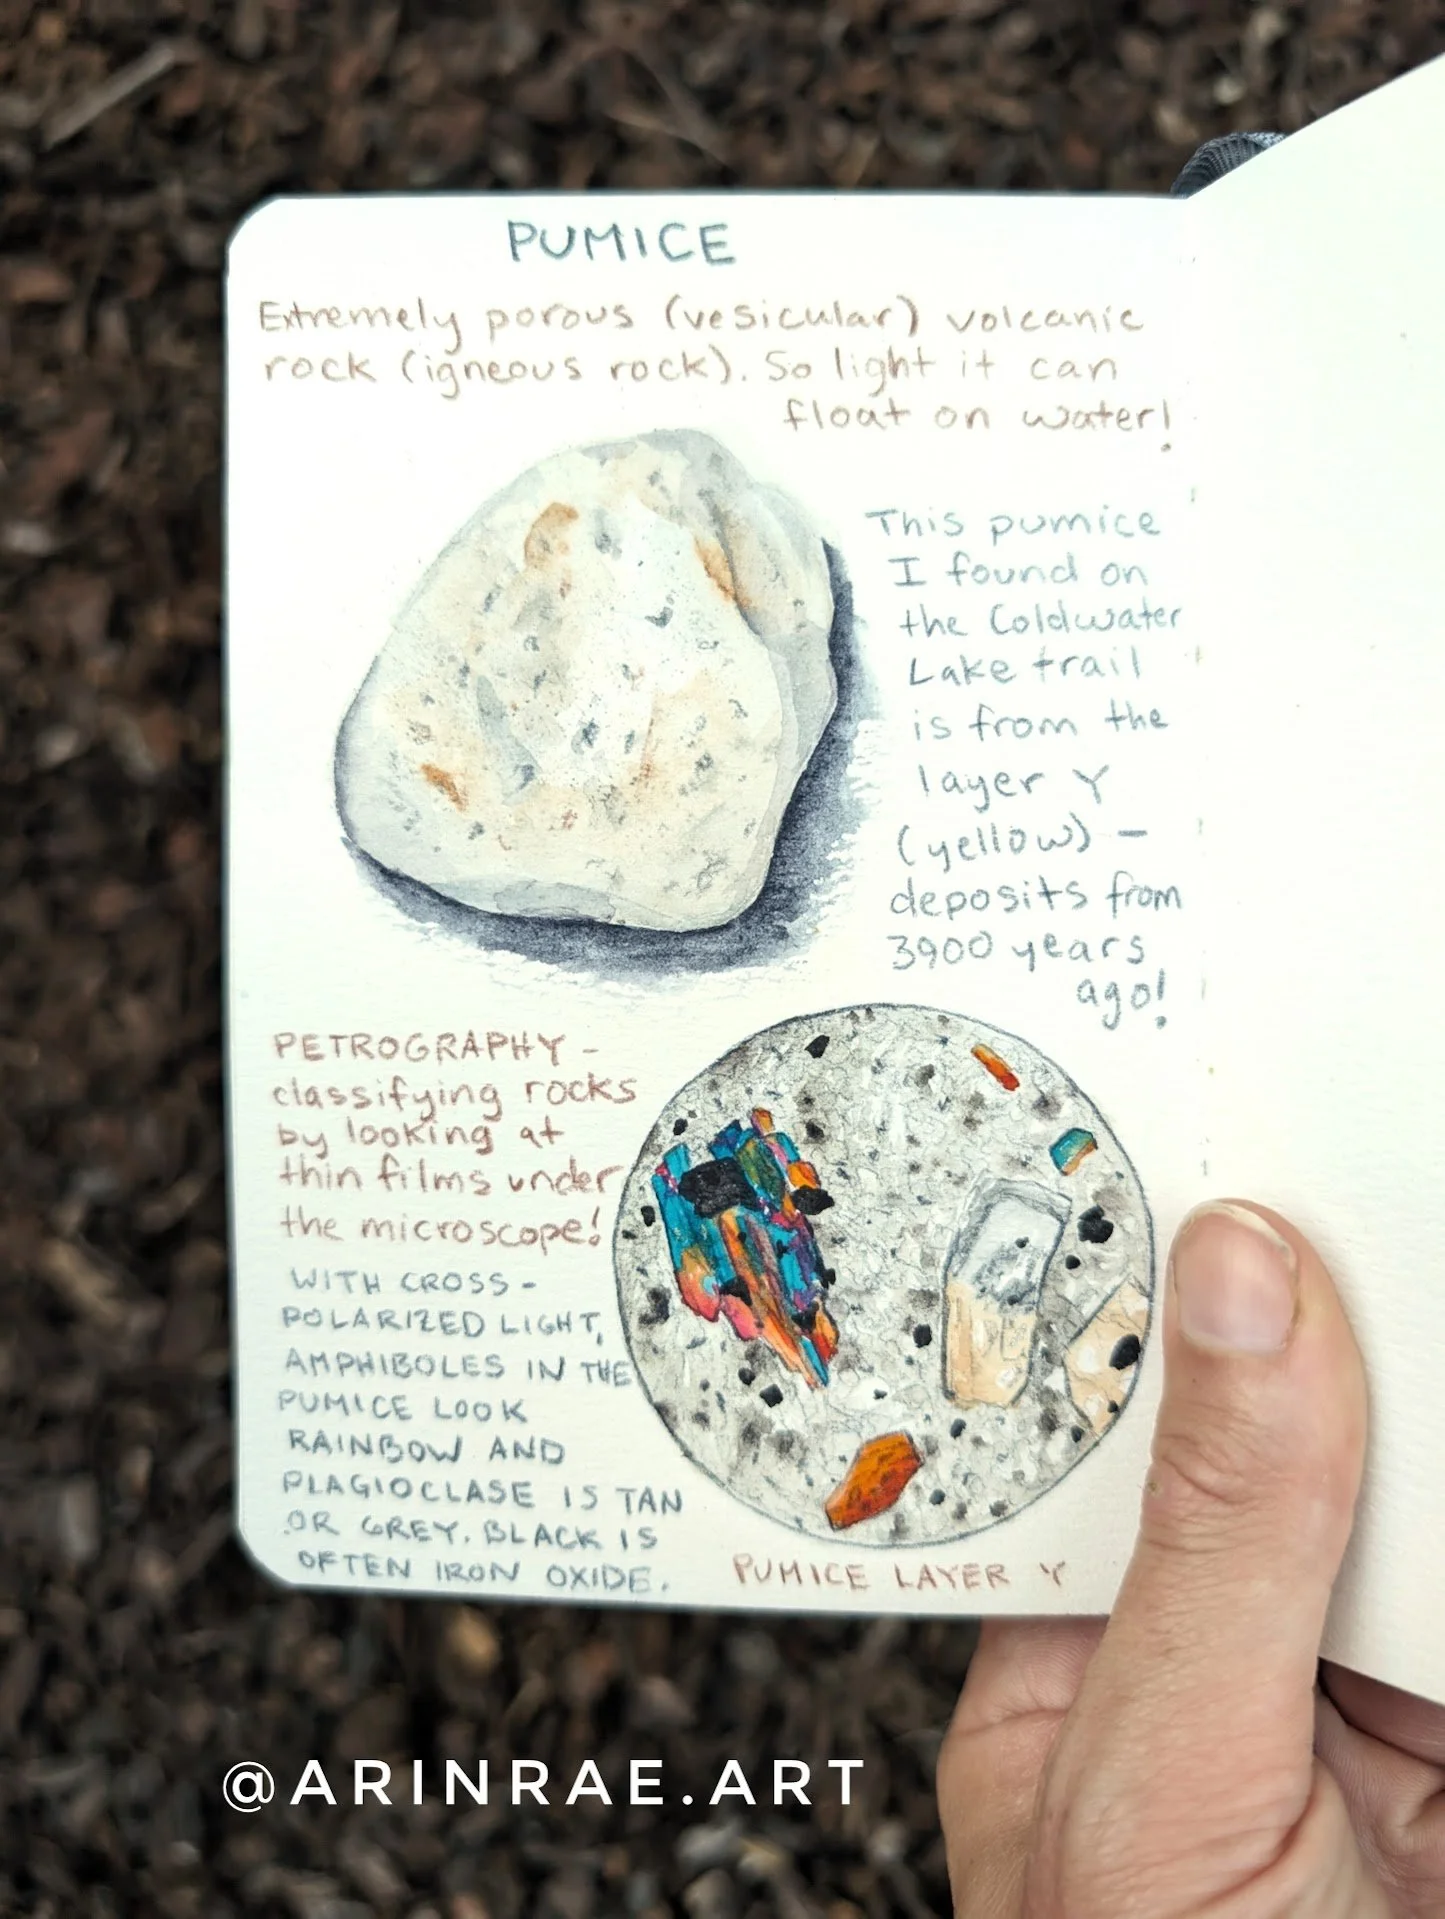 PUMICE
Extremely porous (vesicular) volcanic
rock (igneous rock). So light it can
float on water!
This pumice
I found on
the Coldwater
Lake trail
is from the
layer Y
(yellow) –
deposits from
3900 years
ago!
PETROGRAPHY –
classifying rocks
by looking at
thin films under
the microscope!
WITH CROSS-
POLARIZED LIGHT,
AMPHIBOLES IN THE
PUMICE LOOK
RAINBOW AND
PLAGIOCLASE IS TAN
OR GREY. BLACK IS
OFTEN IRON OXIDE.
PUMICE LAYER Y
@ARINRAE.ART